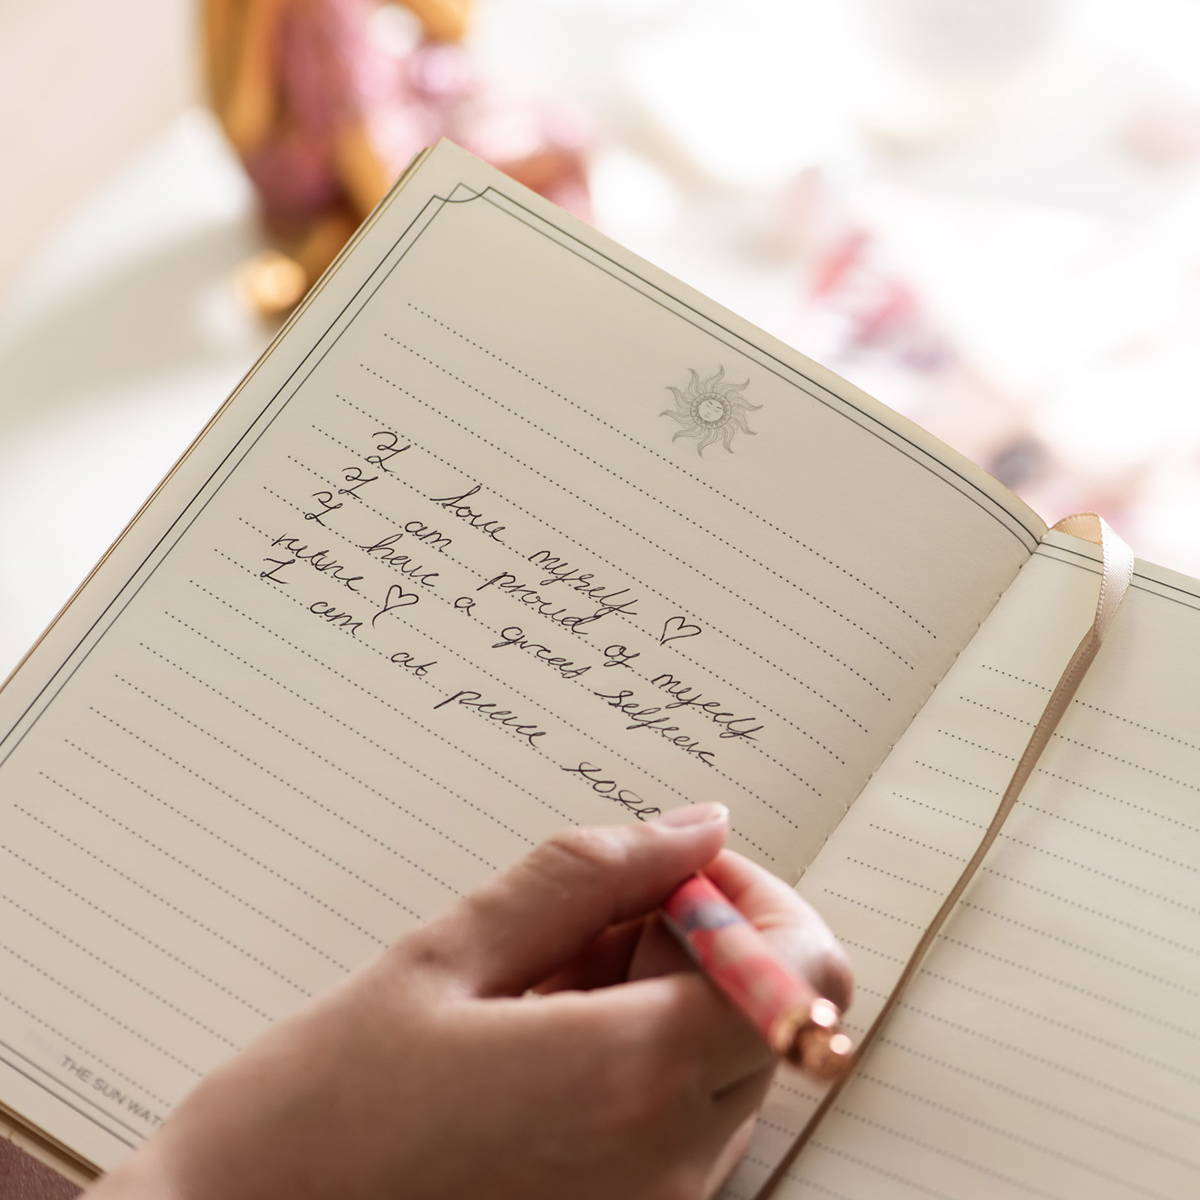 I love myself ♡
I am proud of myself
I have a great selfcare
rutine ♡
I am at peace xoxo
THE SUN WAT